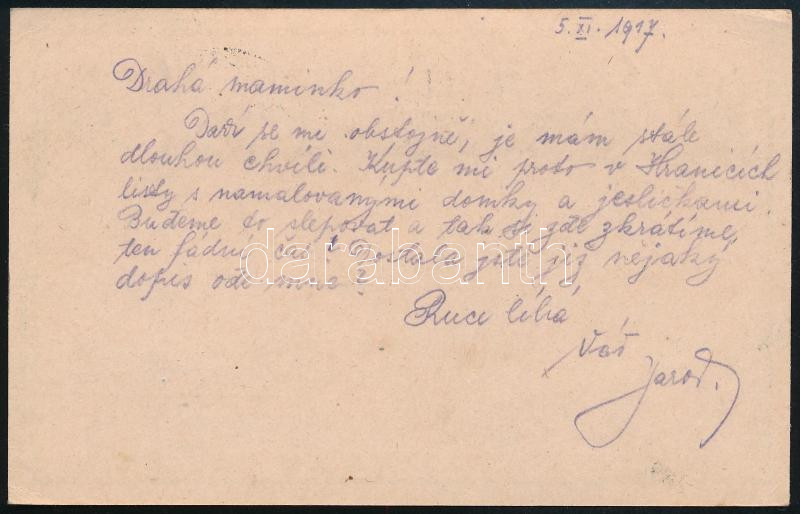 5. XI. 1917.
Drahá maminko!
Daří se mi obstojně, je mám stále
dlouhou chvíli. Kupte mi proto v Hranicích
listy s namalovanými domky a jesličkami.
Budeme to slepovat a tak si zde zkrátíme
ten fádní čas! Dostala jste již nějaký
dopis ode mne?
Ruce líbá
Váš
Jarod.
darabanth